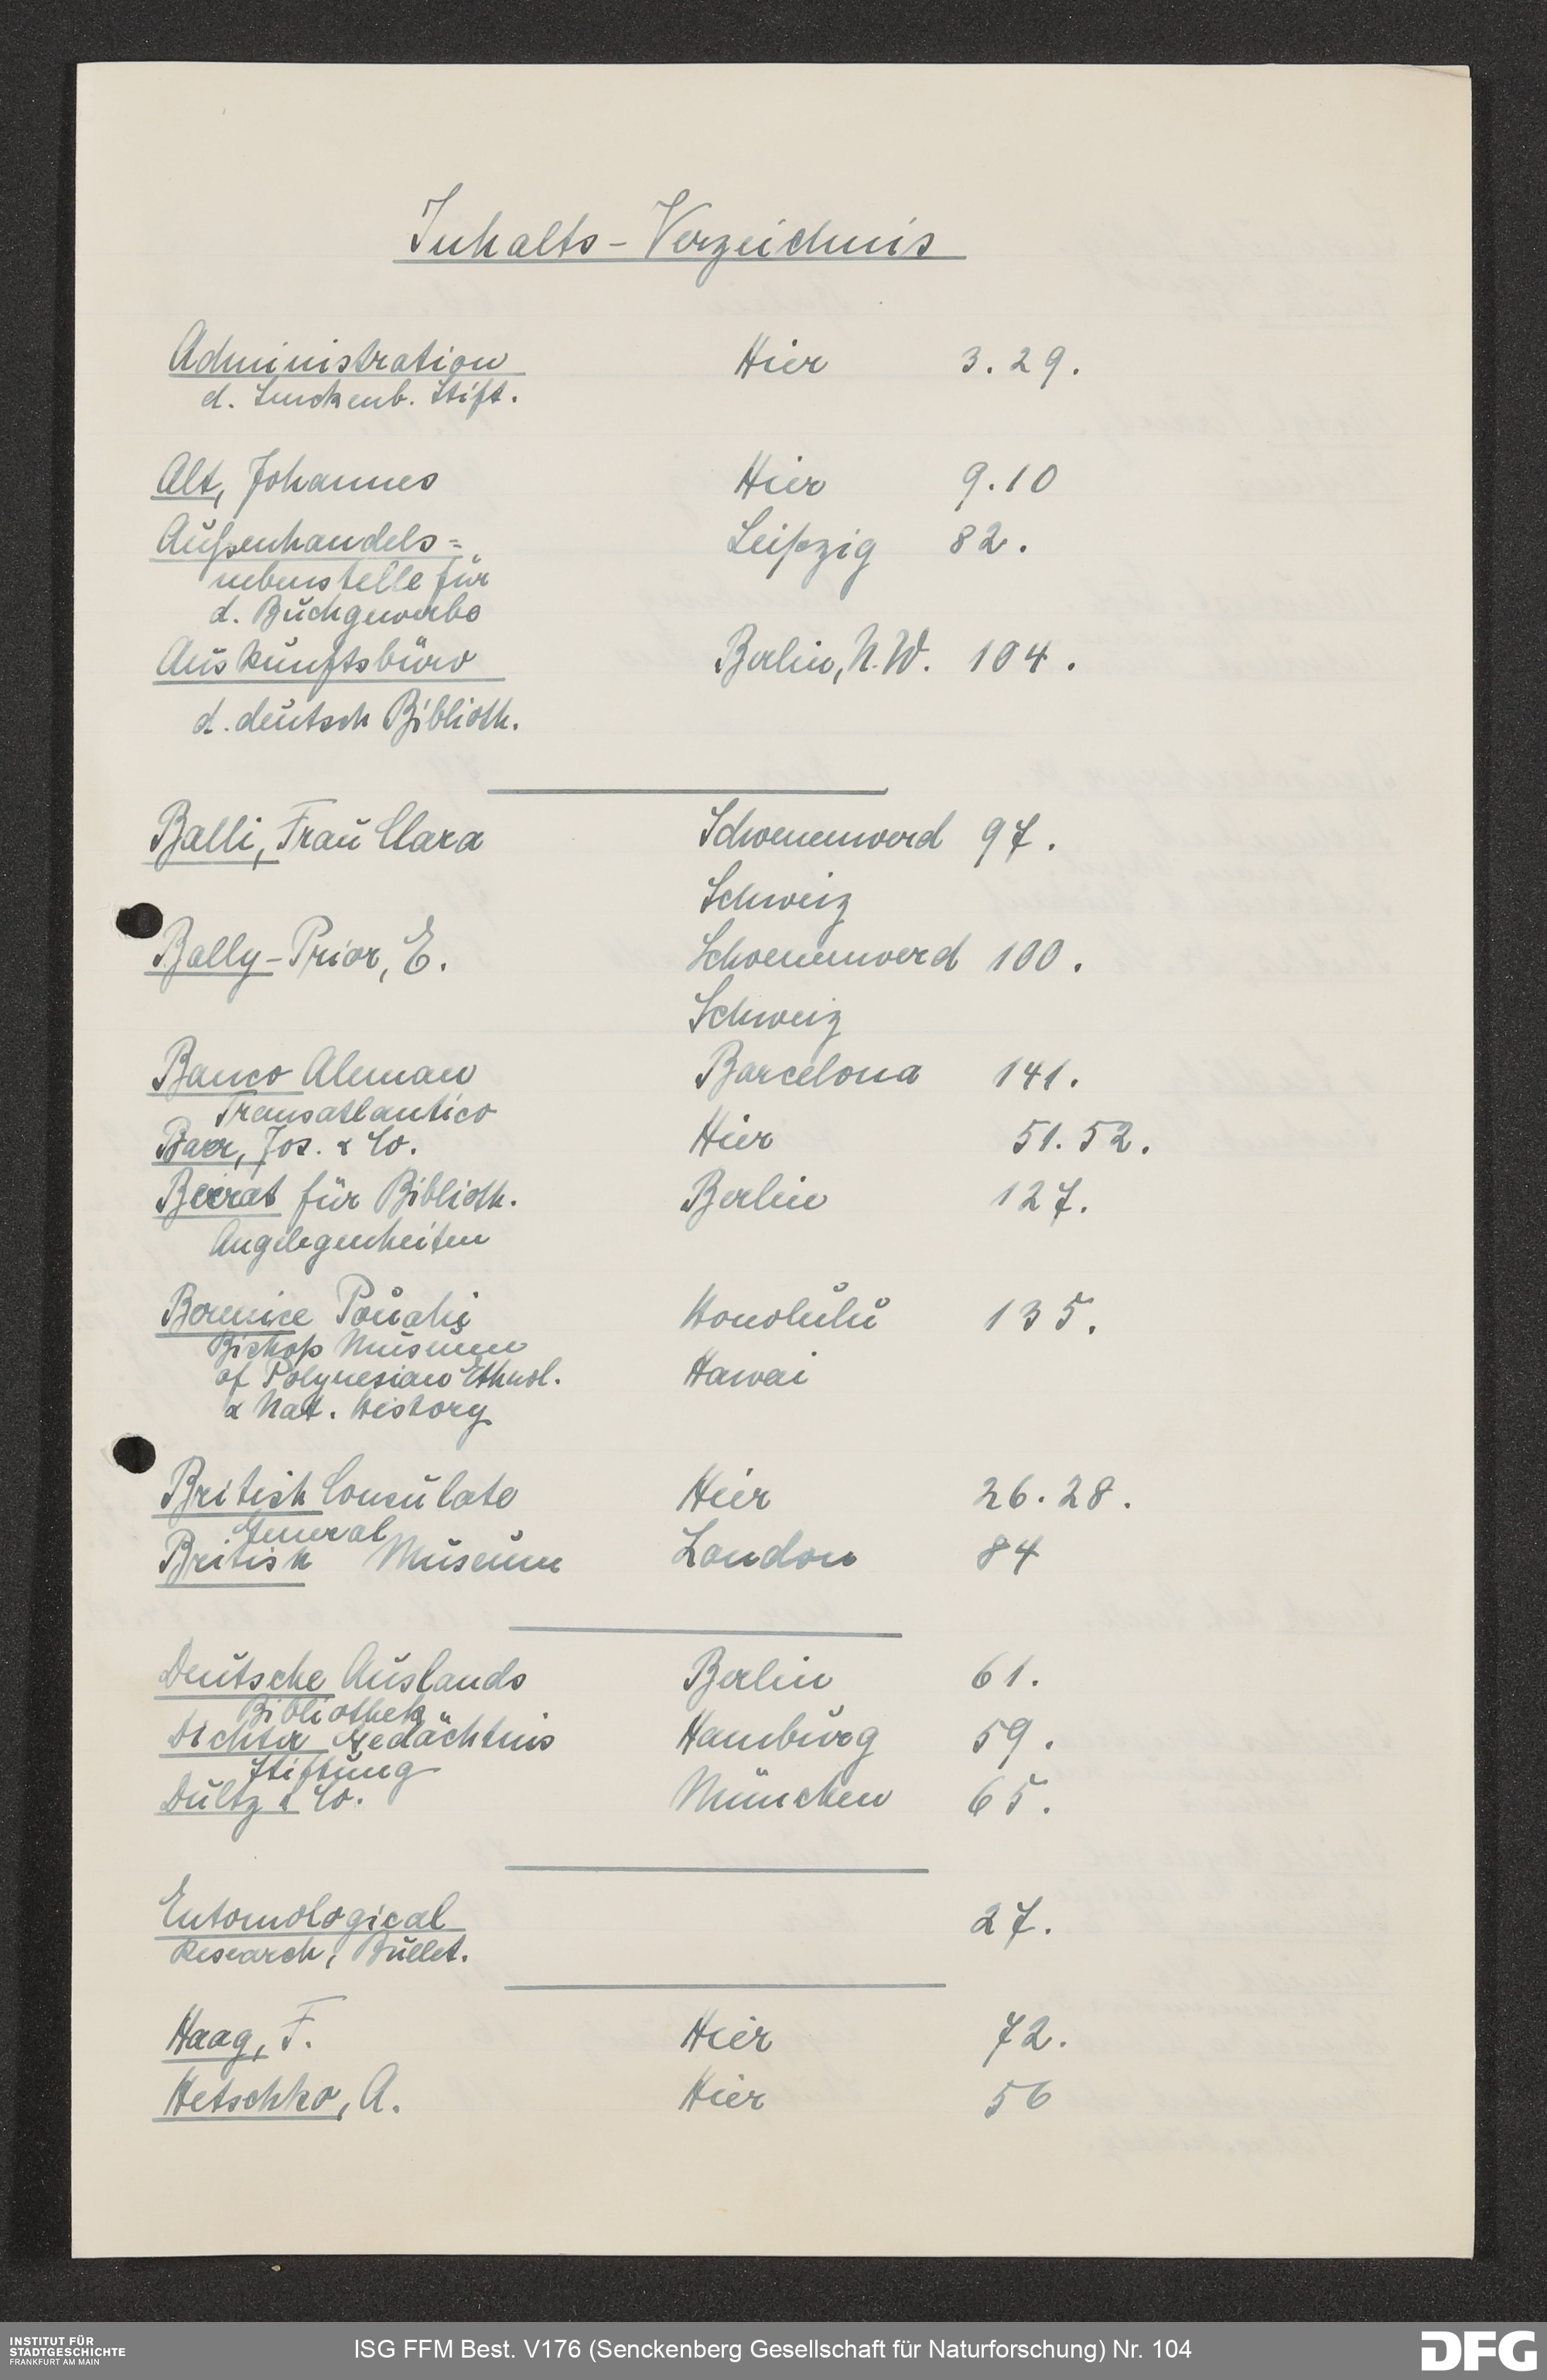 Inhalts-Verzeichnis
Administration Hier 3.29.
d. Senckenb. Stift.
Alt, Johannes Hier 9.10
Außenhandels= Leipzig 82.
nebenstelle für
d. Buchgewerbe
Auskunftsbüro Berlin, N.W. 104.
d. deutsch Biblioth.
Balli, Frau Clara Schoenenwerd 97.
Schweiz
Bally-Prior, E. Schoenenwerd 100.
Schweiz
Banco Aleman Barcelona 141.
Transatlantico
Baer, Jos. & Co. Hier 51.52.
Beirat für Biblioth. Berlin 127.
Angelegenheiten
Bernice Pauahi Honolulu 135.
Bishop Museum
of Polynesian Ethnol. Hawai
& Nat. History
British Consulate Hier 26.28.
General
British Museum London 84
Deutsche Auslands Berlin 61.
Bibliothek
Dichter Gedächtnis Hamburg 59.
Stiftung
Dultz & Co. München 65.
Entomological 27.
Research, Bullet.
Haag, F. Hier 72.
Hetschko, A. Hier 56
INSTITUT FÜR
STADTGESCHICHTE
FRANKFURT AM MAIN
ISG FFM Best. V176 (Senckenberg Gesellschaft für Naturforschung) Nr. 104
DFG